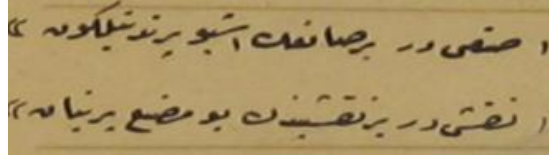 صنعی در بر صانعك اشبو پرند نیلکون »
نقشی در بر نقشبندك بو مصنع پرنیان »